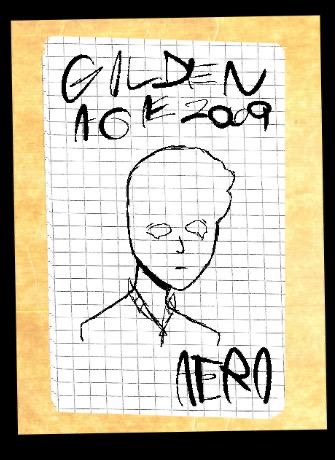 GILDEN
AGE 2009
NERO